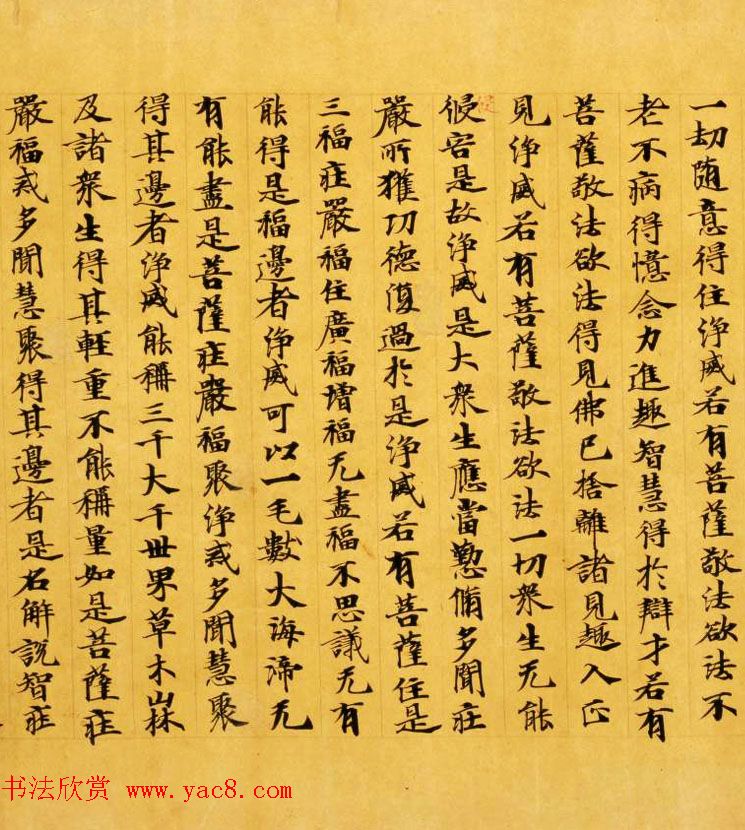 一劫随意得住淨威若有菩薩敬法欲法不
老不病得憶念力進趣智慧得於辯才若有
菩薩敬法欲法得見佛已捨離諸見趣入正
見淨威若有菩薩敬法欲法一切衆生无能
侵害是故淨威是大衆生應當懃脩多聞莊
嚴所獲功德復過於是淨威若有菩薩住是
三福莊嚴福住廣福增福无盡福不思議无有
能得是福邊者淨威可以一毛數大海渧无
有能盡是菩薩莊嚴福聚淨戒多聞慧聚
得其邊者淨威能稱三千大千世界草木山林
及諸衆生得其輕重不能稱量如是菩薩莊
嚴福戒多聞慧聚得其邊者是名解說智莊
书法欣赏 www.yac8.com